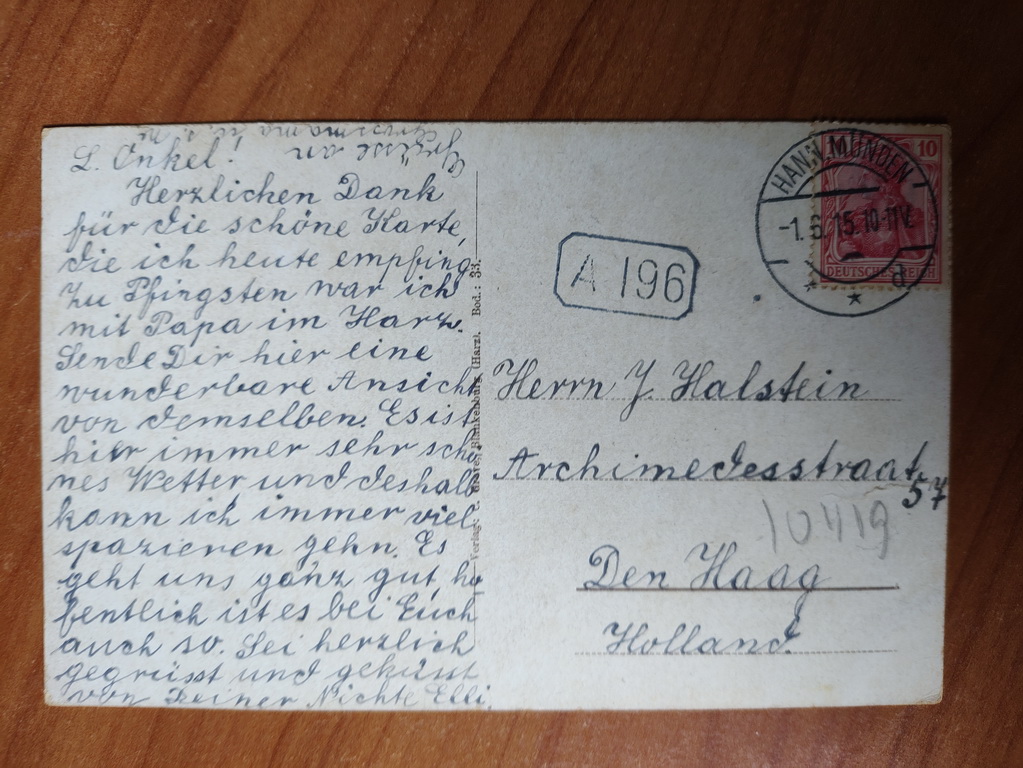 L. Onkel!
Herzlichen Dank
für die schöne Karte,
die ich heute empfing.
Zu Pfingsten war ich
mit Papa im Harz.
Sende Dir hier eine
wunderbare Ansicht
von demselben. Es ist
hier immer sehr schö
nes Wetter und deshalb
kann ich immer viel
spazieren gehn. Es
geht uns ganz gut, ho
fentlich ist es bei Euch
auch so. Sei herzlich
gegrüsst und geküsst
von Deiner Nichte Elli.
Grüsse an
Grossmama u. s.
Blankenburg (Harz). Bod.: 33.
A 196
HANN. MÜNDEN
-1.6.15.10-11V.
* * d
10
DEUTSCHES REICH
Herrn J. Halstein
Archimedesstraat
57
10419
Den Haag
Holland.